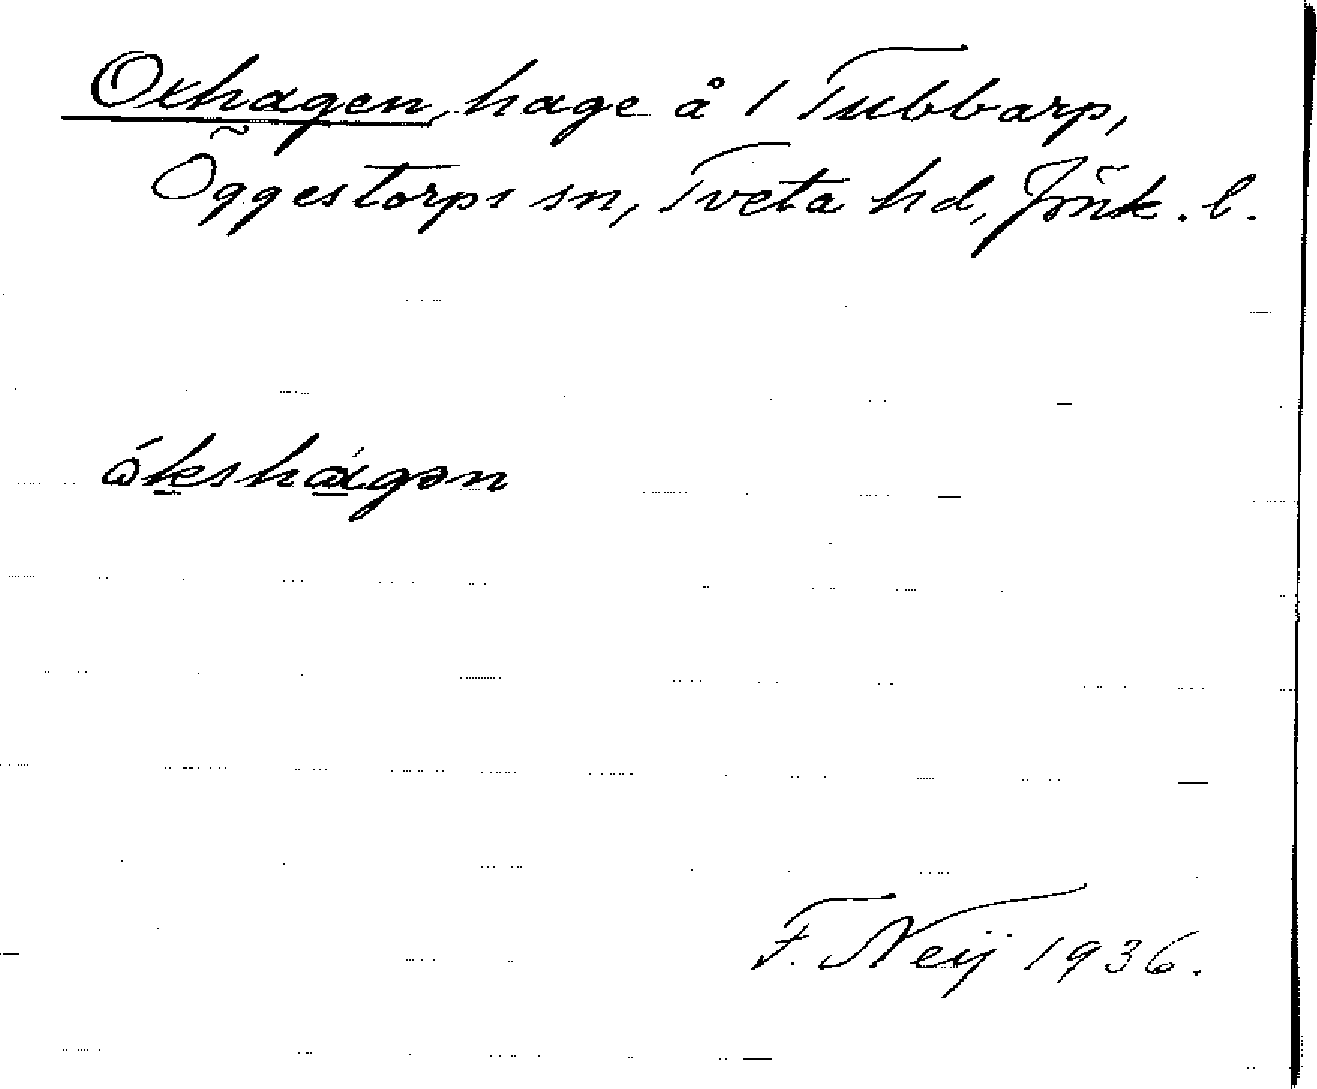 Oxhagen, hage å 1 Tubbarp,
Öggestorps sn, Tveta hd, Jönk. l.
ókshágən
F. Neij 1936.